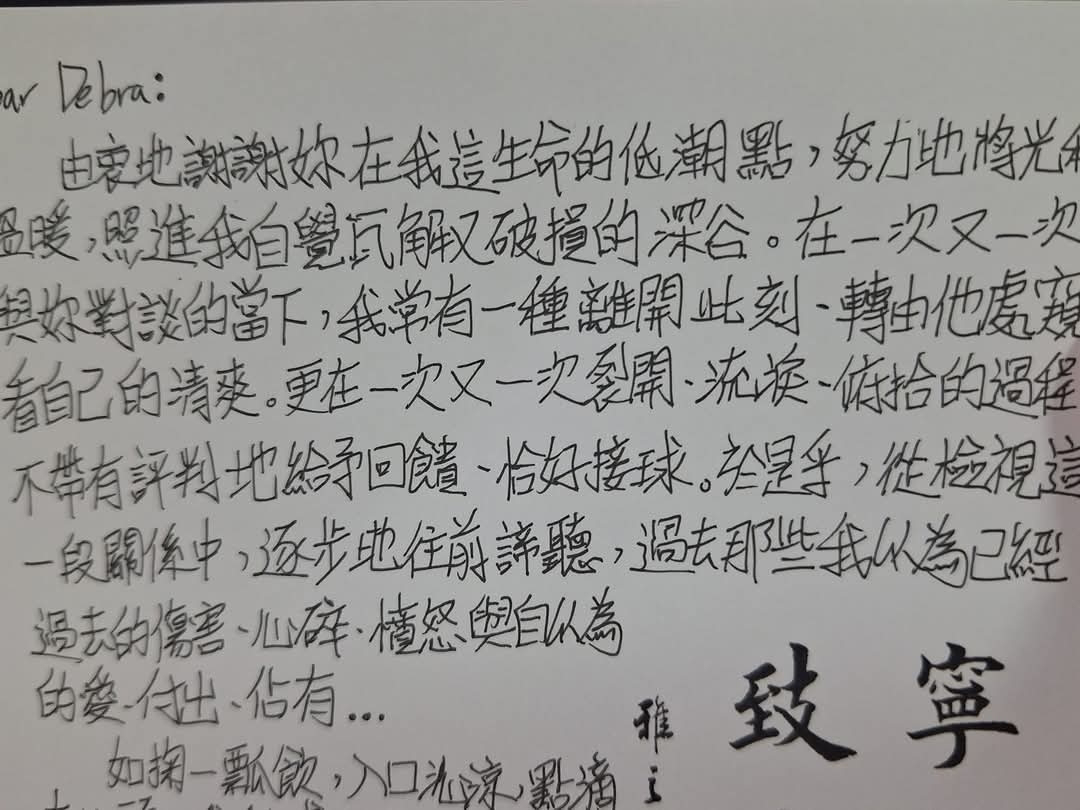 ear Debra:
由衷地謝謝妳在我這生命的低潮點，努力地將光和
溫暖，照進我自覺瓦解又破損的深谷。在一次又一次
與妳對談的當下，我常有一種離開此刻、轉由他處窺
看自己的清爽。更在一次又一次裂開、流淚、俯拾的過程
不帶有評判地給予回饋、恰好接球。於是乎，從檢視這
一段關係中，逐步地往前諦聽，過去那些我以為已經
過去的傷害、心碎、憤怒與自以為
的愛、付出、佔有...
如掬一瓢飲，入口沁涼，點滴
雅
致寧